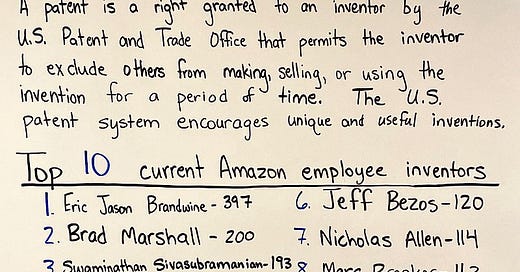 A patent is a right granted to an inventor by the
U.S. Patent and Trade Office that permits the inventor
to exclude others from making, selling, or using the
invention for a period of time. The U.S.
patent system encourages unique and useful inventions.
Top 10 current Amazon employee inventors
1. Eric Jason Brandwine - 397
2. Brad Marshall - 200
3. Swaminathan Sivasubramanian - 193
6. Jeff Bezos - 120
7. Nicholas Allen - 114
8